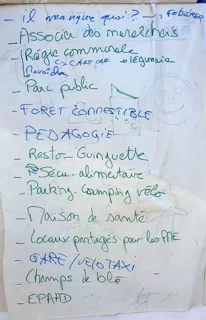 - il manque quoi? →
- Associa des maraîchers
- Régie communale
↳ CANTINE + légumerie
- Parc public
- FORÊT COMESTIBLE
- PEDAGOGIE
- Resto-Guinguette
- Sécu-alimentaire
- Parking-camping vélo
- Maison de santé
- Locaux partagés pour les PME
- GARE / VELOTAXI
- Champs de blé
- EPAHD